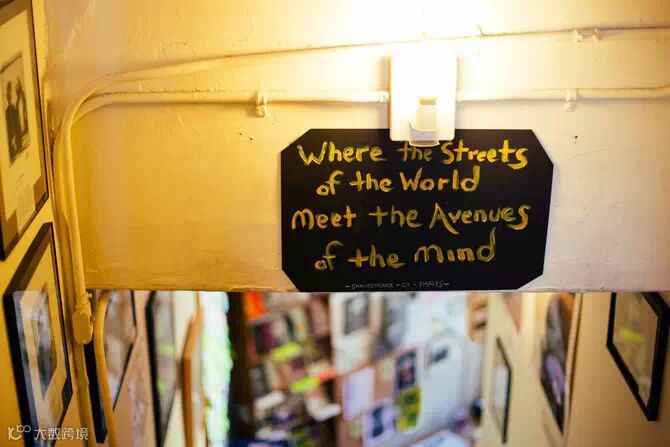 Where the Streets
of the World
meet the Avenues
of the mind
- SHAKESPEARE - CO - PARIS -
大数跨境